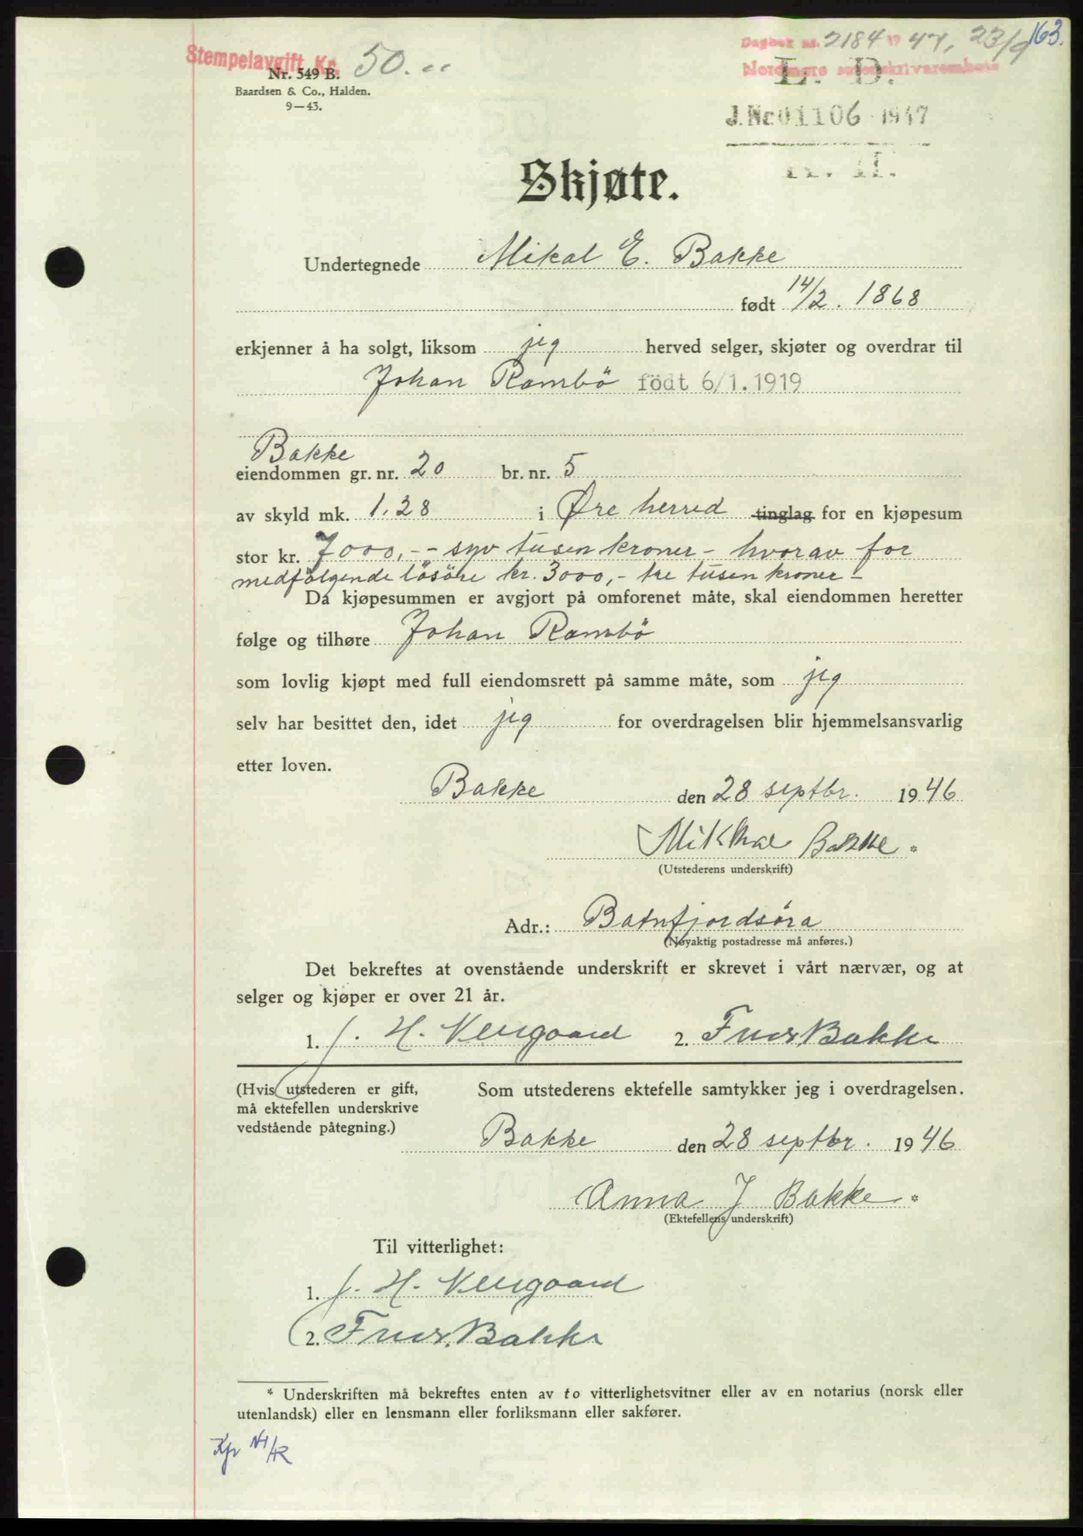 Stempelavgift Kr. 50.-
Nr. 549 B.
Baardsen & Co., Halden.
9—43.
Dagbok nr. 2184 1947, 23/9 163.
Nordmøre sorenskriverembete
L. D.
J.Nr 01106 1947
Skjøte.
Undertegnede Mikal E. Bakke
født 14/2. 1868
erkjenner å ha solgt, liksom jeg herved selger, skjøter og overdrar til
Johan Rambö födt 6/1.1919
Bakke
eiendommen gr. nr. 20 br. nr. 5
av skyld mk. 1,28 i Øre herred tinglag for en kjøpesum
stor kr. 7000,-- syv tusen kroner - hvorav for
medfølgende løsöre kr. 3000,- tre tusen kroner -
Da kjøpesummen er avgjort på omforenet måte, skal eiendommen heretter
følge og tilhøre Johan Rambö
som lovlig kjøpt med full eiendomsrett på samme måte, som jeg
selv har besittet den, idet jeg for overdragelsen blir hjemmelsansvarlig
etter loven.
Bakke den 28 septbr. 1946
Mikkal Bakke *
(Utstederens underskrift)
Adr.: Batnfjordsøra
(Nøyaktig postadresse må anføres.)
Det bekreftes at ovenstående underskrift er skrevet i vårt nærvær, og at
selger og kjøper er over 21 år.
1. J. H. 2. Bakke
(Hvis utstederen er gift,
må ektefellen underskrive
vedstående påtegning.)
Som utstederens ektefelle samtykker jeg i overdragelsen.
Bakke den 28 septbr. 1946
Anna J Bakke *
(Ektefellens underskrift)
Til vitterlighet:
1. J. H.
2. Bakke
* Underskriften må bekreftes enten av to vitterlighetsvitner eller av en notarius (norsk eller
utenlandsk) eller en lensmann eller forliksmann eller sakfører.